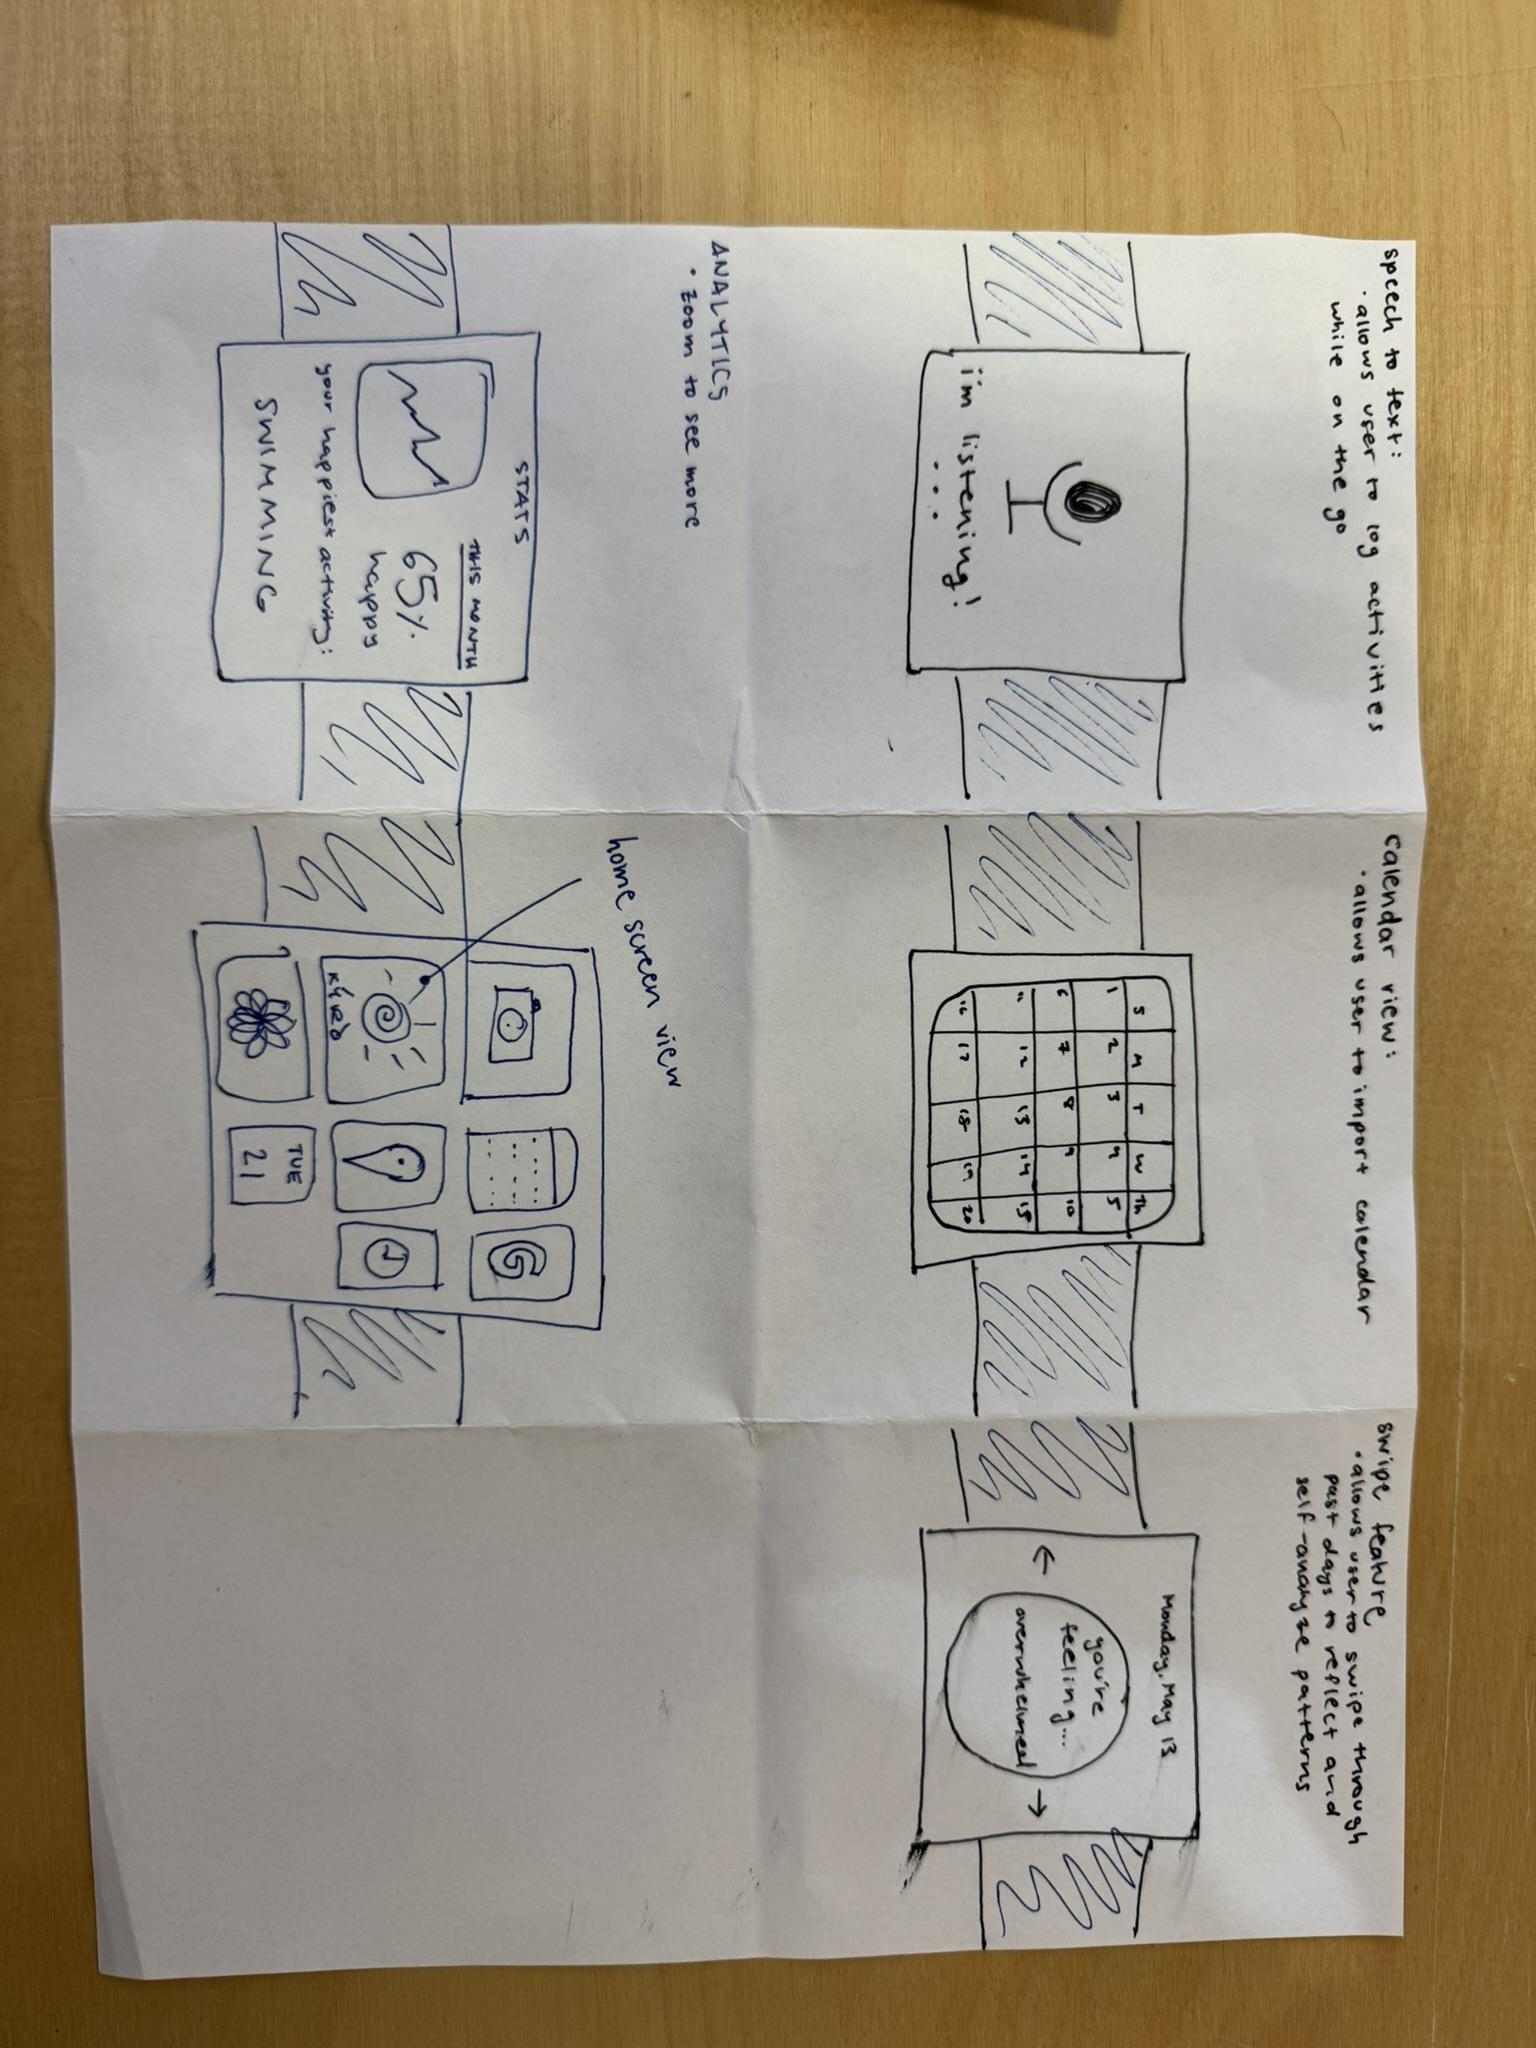 speech to text:
• allows user to log activities
while on the go
i'm listening!
...
calendar view:
• allows user to import calendar
S M T W Th
1 2 3 4 5
6 7 8 9 10
11 12 13 14 15
16 17 18 19 20
swipe feature
• allows user to swipe through
past days to reflect and
self-analyze patterns
Monday, May 13
← →
you're
feeling...
overwhelmed
ANALYTICS
• zoom to see more
STATS
THIS MONTH
65%
happy
your happiest activity:
SWIMMING
home screen view
G
TUE
21